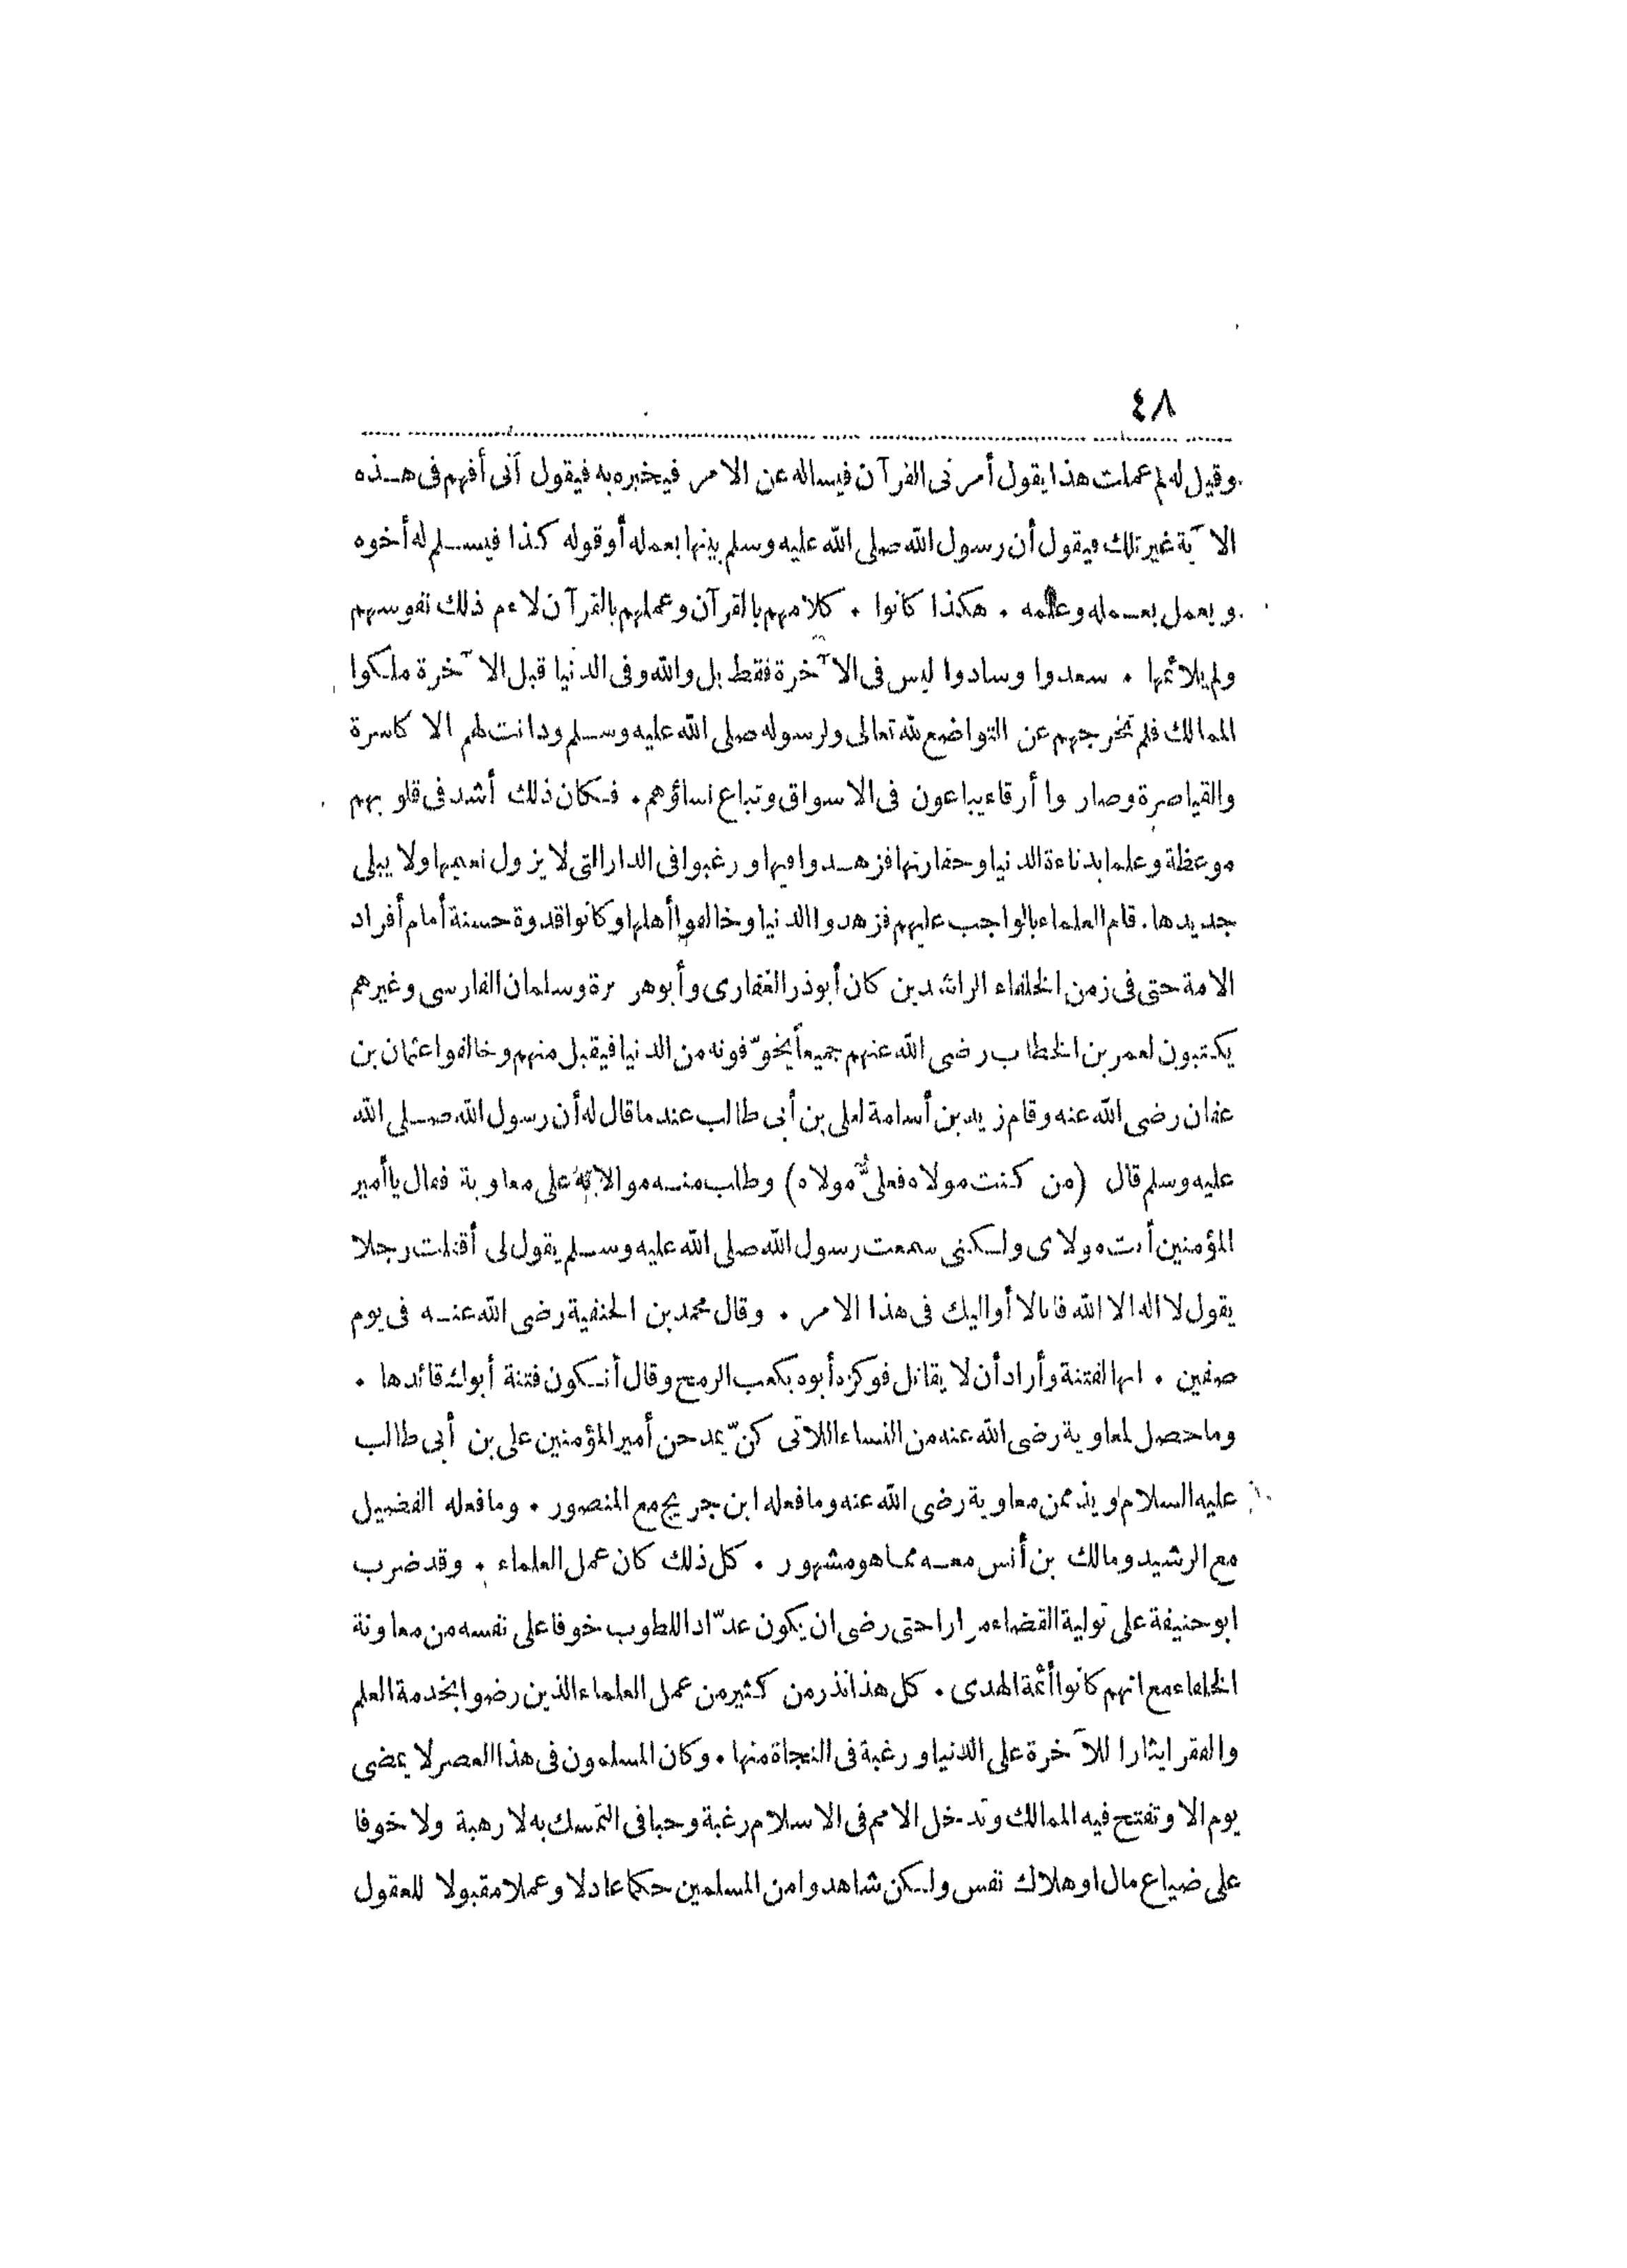 ٤٨
وقيل له لم عملت هذا يقول أمرنى القرآن فيساله عن الامر فيخبره به فيقول أنى أفهم فى هذه
الآية غير تلك فيقول أن رسول الله صلى الله عليه وسلم بينها بعمله أو قوله كذا فيسلم له أخوه
ويعمل بعمله وعلمه . هكذا كانوا . كلامهم بالقرآن وعملهم بالقرآن لاءم ذلك نفوسهم
ولم يلائمها . سعدوا وسادوا ليس فى الآخرة فقط بل والله وفى الدنيا قبل الآخرة ملكوا
الممالك فلم تخرجهم عن التواضع لله تعالى ولرسوله صلى الله عليه وسلم ودانت لهم الا كاسرة
والقياصرة وصاروا أرقاء يباعون فى الاسواق وتباع نساؤهم . فكان ذلك أشد فى قلوبهم
موعظة وعلما بدناءة الدنيا وحقارتها فزهدوا فيها ورغبوا فى الدار التى لا يزول نعيمها ولا يبلى
جديدها . قام العلماء بالواجب عليهم فزهدوا الدنيا وخالفوا أهلها وكانوا قدوة حسنة أمام أفراد
الامة حتى فى زمن الخلفاء الراشدين كان أبوذر الغفارى وأبو هريرة وسلمان الفارسى وغيرهم
يكتبون لعمر بن الخطاب رضى الله عنهم جميعاً يخوّفونه من الدنيا فيقبل منهم وخالفوا عثمان بن
عفان رضى الله عنه وقام زيد بن أسامة لعلى بن أبى طالب عند ما قال له أن رسول الله صلى الله
عليه وسلم قال (من كنت مولاه فعلىٌّ مولاه) وطلب منه موالاته على معاوية فقال يا أمير
المؤمنين أنت مولاى ولكنى سمعت رسول الله صلى الله عليه وسلم يقول لى أقتلت رجلا
يقول لا اله الا الله فانا لا أواليك فى هذا الامر . وقال محمد بن الحنفية رضى الله عنه فى يوم
صفين . انها لفتنة وأراد أن لا يقاتل فوكزه أبوه بكعب الرمح وقال أتكون فتنة أبوك قائدها .
وما حصل لمعاوية رضى الله عنه من النساء اللاتى كنّ يمدحن أمير المؤمنين على بن أبى طالب
عليه السلام ويذممن معاوية رضى الله عنه وما فعله ابن جريج مع المنصور . وما فعله الفضيل
مع الرشيد ومالك بن أنس معه مما هو مشهور . كل ذلك كان عمل العلماء . وقد ضرب
ابو حنيفة على تولية القضاء مرارا حتى رضى ان يكون عدّادا للطوب خوفا على نفسه من معاونة
الخلفاء مع انهم كانوا أئمة الهدى . كل هذا نذر من كثير من عمل العلماء الذين رضوا بخدمة العلم
والفقر ايثارا للآخرة على الدنيا ورغبة فى النجاة منها . وكان المسلمون فى هذا العصر لا يمضى
يوم الا وتفتح فيه الممالك وتدخل الامم فى الاسلام رغبة وحبا فى التمسك به لا رهبة ولا خوفا
على ضياع مال او هلاك نفس ولكن شاهدوا من المسلمين حكما عادلا وعملا مقبولا للعقول